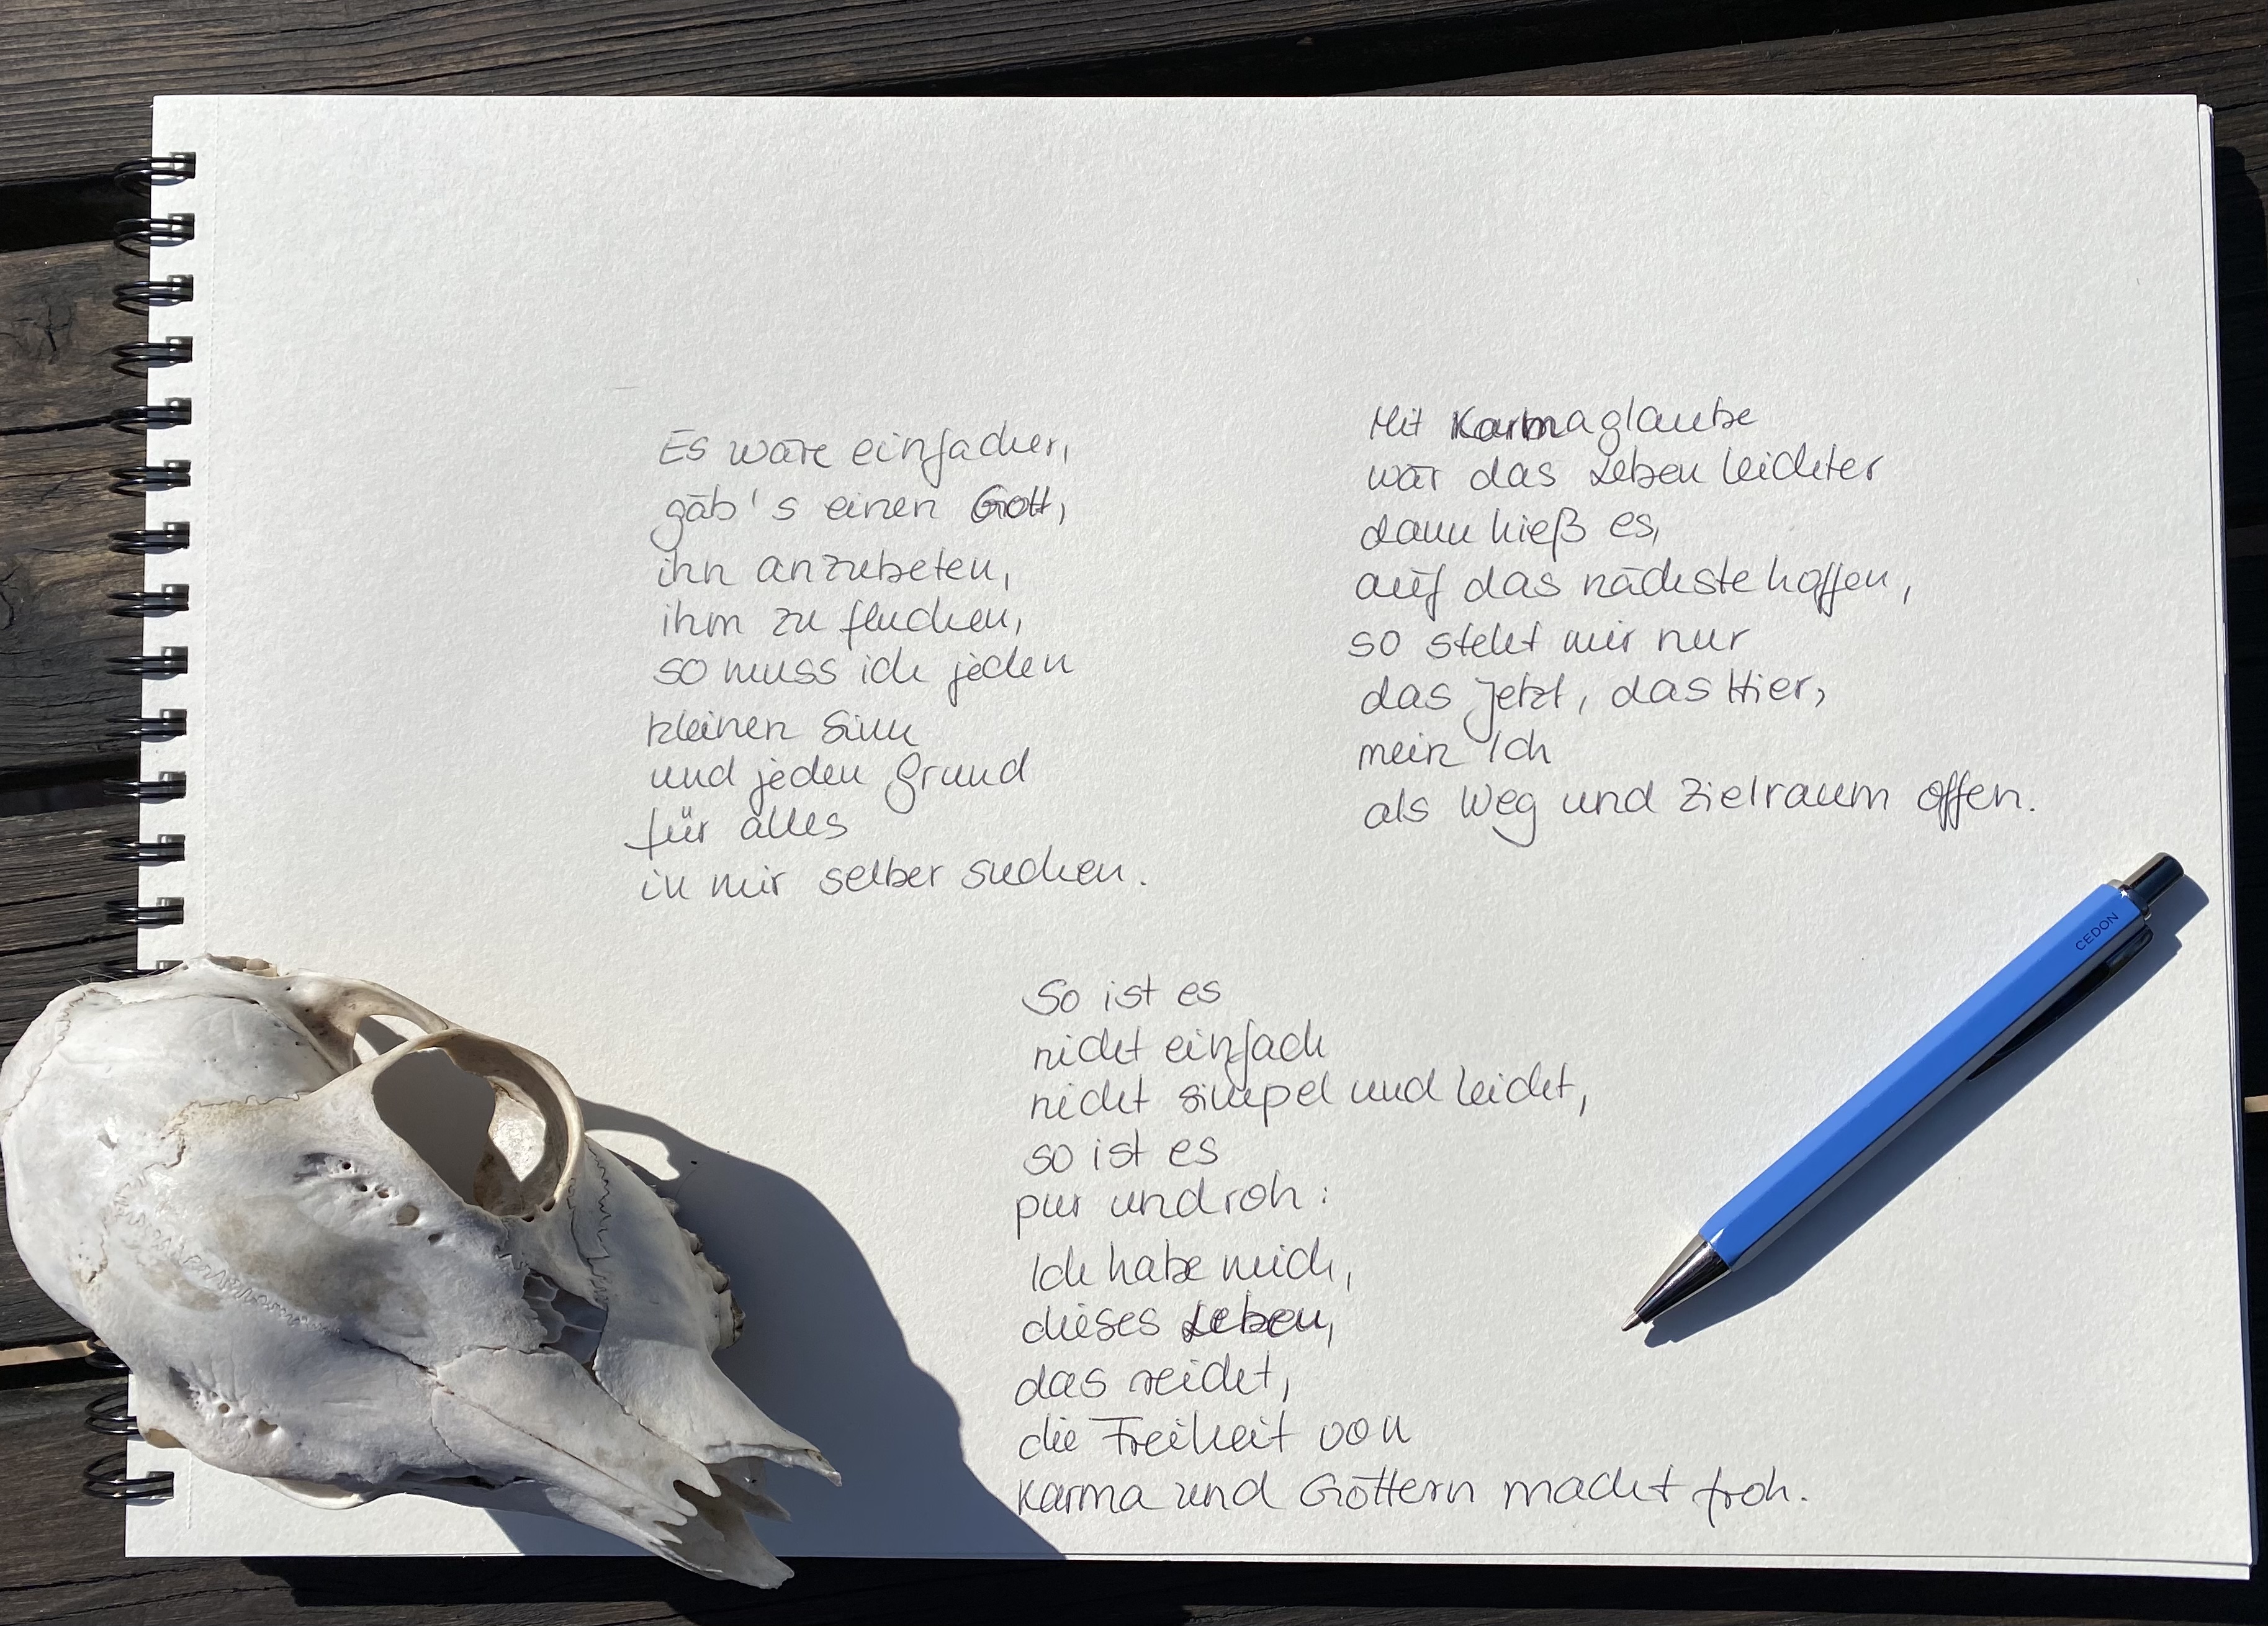 Es wäre einfacher,
gäb's einen Gott,
ihn anzubeten,
ihm zu fluchen,
so muss ich jeden
kleinen Sinn
und jeden Grund
für alles
in mir selber suchen.
Mit Karmaglaube
wär das Leben leichter
dann hieß es,
auf das nächste hoffen,
so steht mir nur
das Jetzt, das Hier,
mein Ich
als Weg und Zielraum offen.
So ist es
nicht einfach
nicht simpel und leicht,
so ist es
pur und roh:
Ich habe mich,
dieses Leben,
das reicht,
die Freiheit von
Karma und Göttern macht froh.
CEDON